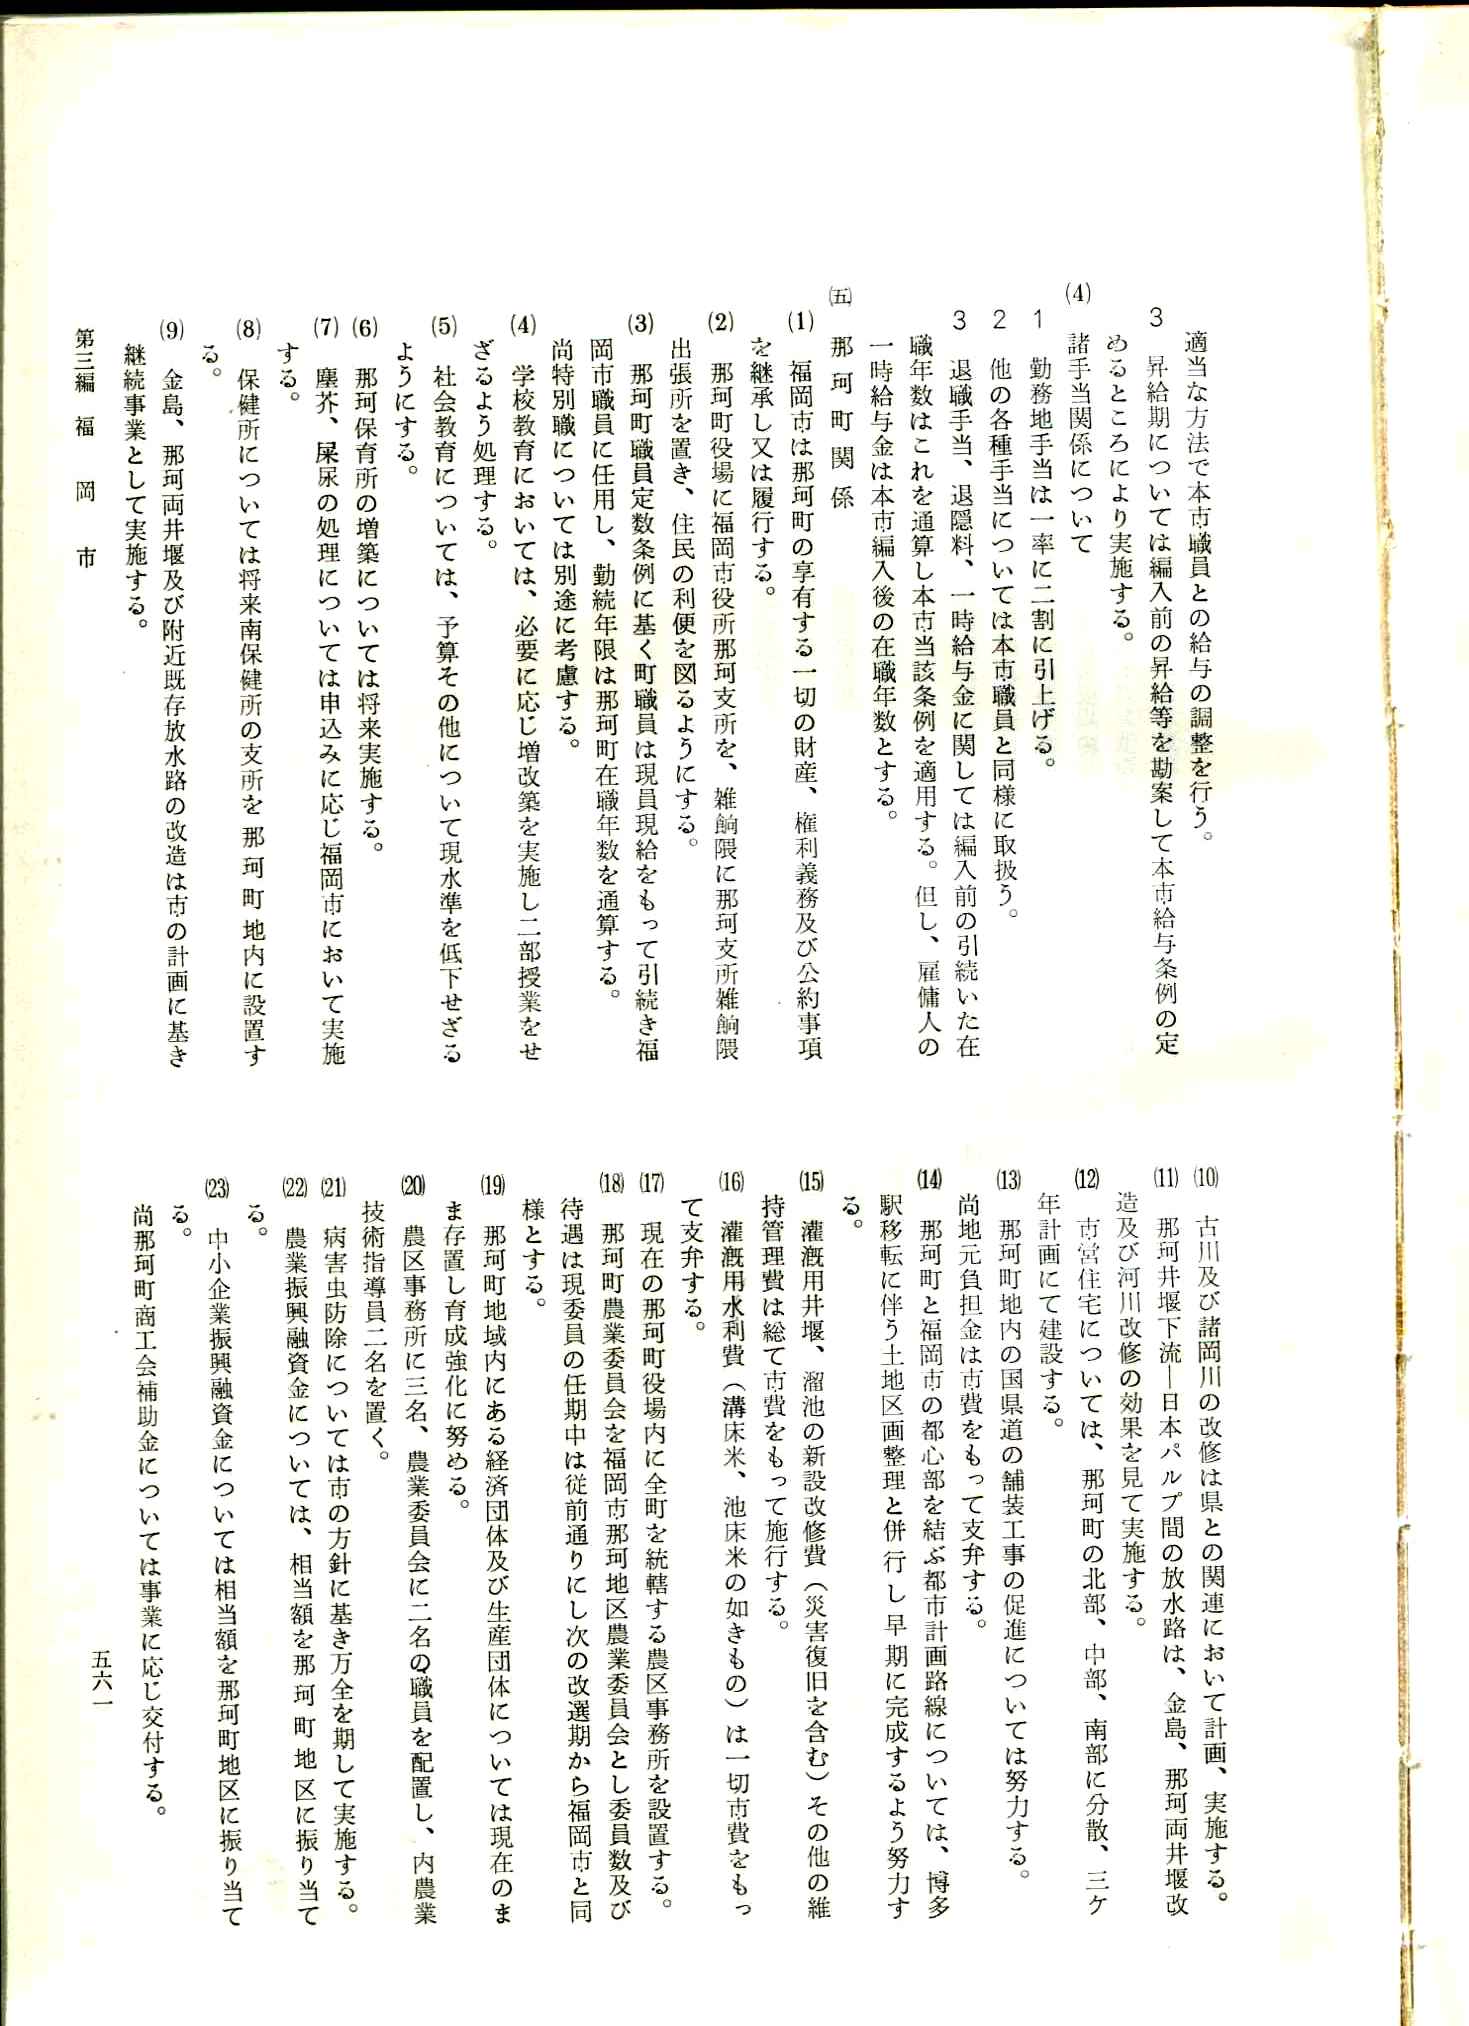 適当な方法で本市職員との給与の調整を行う。
3　昇給期については編入前の昇給等を勘案して本市給与条例の定
めるところにより実施する。
(4)　諸手当関係について
1　勤務地手当は一率に二割に引上げる。
2　他の各種手当については本市職員と同様に取扱う。
3　退職手当、退隠料、一時給与金に関しては編入前の引続いた在
職年数はこれを通算し本市当該条例を適用する。但し、雇傭人の
一時給与金は本市編入後の在職年数とする。
㈤　那珂町関係
(1)　福岡市は那珂町の享有する一切の財産、権利義務及び公約事項
を継承し又は履行する。
(2)　那珂町役場に福岡市役所那珂支所を、雑餉隈に那珂支所雑餉隈
出張所を置き、住民の利便を図るようにする。
(3)　那珂町職員定数条例に基く町職員は現員現給をもって引続き福
岡市職員に任用し、勤続年限は那珂町在職年数を通算する。
尚特別職については別途に考慮する。
(4)　学校教育においては、必要に応じ増改築を実施し二部授業をせ
ざるよう処理する。
(5)　社会教育については、予算その他について現水準を低下せざる
ようにする。
(6)　那珂保育所の増築については将来実施する。
(7)　塵芥、屎尿の処理については申込みに応じ福岡市において実施
する。
(8)　保健所については将来南保健所の支所を那珂町地内に設置す
る。
(9)　金島、那珂両井堰及び附近既存放水路の改造は市の計画に基き
継続事業として実施する。
第三編　福岡市
(10)　古川及び諸岡川の改修は県との関連において計画、実施する。
(11)　那珂井堰下流―日本パルプ間の放水路は、金島、那珂両井堰改
造及び河川改修の効果を見て実施する。
(12)　市営住宅については、那珂町の北部、中部、南部に分散、三ケ
年計画にて建設する。
(13)　那珂町地内の国県道の舗装工事の促進については努力する。
尚地元負担金は市費をもって支弁する。
(14)　那珂町と福岡市の都心部を結ぶ都市計画路線については、博多
駅移転に伴う土地区画整理と併行し早期に完成するよう努力す
る。
(15)　灌漑用井堰、溜池の新設改修費（災害復旧を含む）その他の維
持管理費は総て市費をもって施行する。
(16)　灌漑用水利費（溝床米、池床米の如きもの）は一切市費をもっ
て支弁する。
(17)　現在の那珂町役場内に全町を統轄する農区事務所を設置する。
(18)　那珂町農業委員会を福岡市那珂地区農業委員会とし委員数及び
待遇は現委員の任期中は従前通りにし次の改選期から福岡市と同
様とする。
(19)　那珂町地域内にある経済団体及び生産団体については現在のま
ま存置し育成強化に努める。
(20)　農区事務所に三名、農業委員会に二名の職員を配置し、内農業
技術指導員二名を置く。
(21)　病害虫防除については市の方針に基き万全を期して実施する。
(22)　農業振興融資金については、相当額を那珂町地区に振り当て
る。
(23)　中小企業振興融資金については相当額を那珂町地区に振り当て
る。
尚那珂町商工会補助金については事業に応じ交付する。
五六一